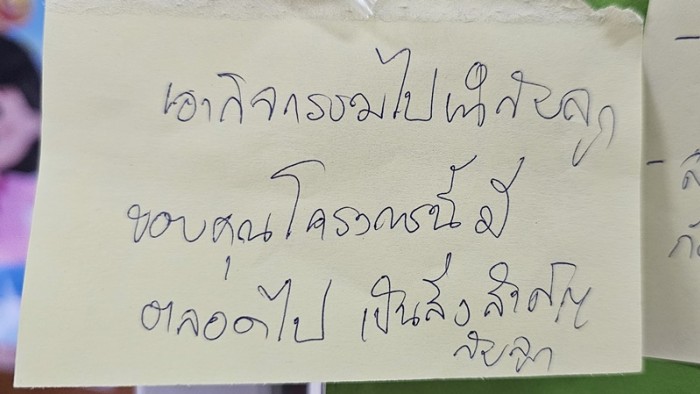 เอากิจกรรมไปทำกับลูก
ขอบคุณโครงการนี้ มี
ตลอดไป เป็นสิ่งสำคัญ
กับลูก